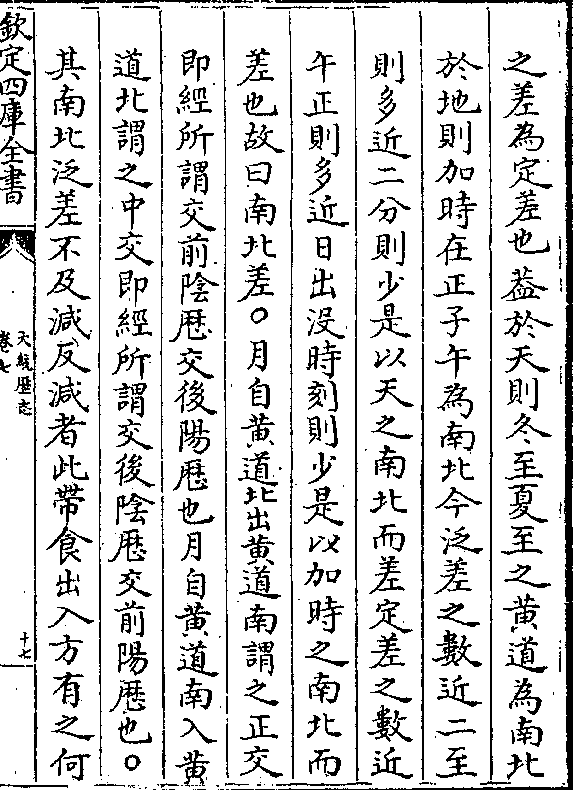 之差為定差也葢於天則冬至夏至之黄道為南北
於地則加時在正子午為南北今泛差之數近二至
則多近二分則少是以天之南北而差定差之數近
午正則多近日出没時刻則少是以加時之南北而
差也故曰南北差〇月自黄道北出黄道南謂之正交
即經所謂交前陰厯交後陽厯也月自黄道南入黄
道北謂之中交即經所謂交後陰厯交前陽厯也〇
其南北泛差不及減反減者此帶食出入方有之何
欽定四庫全書
大統歴志
卷七
十七